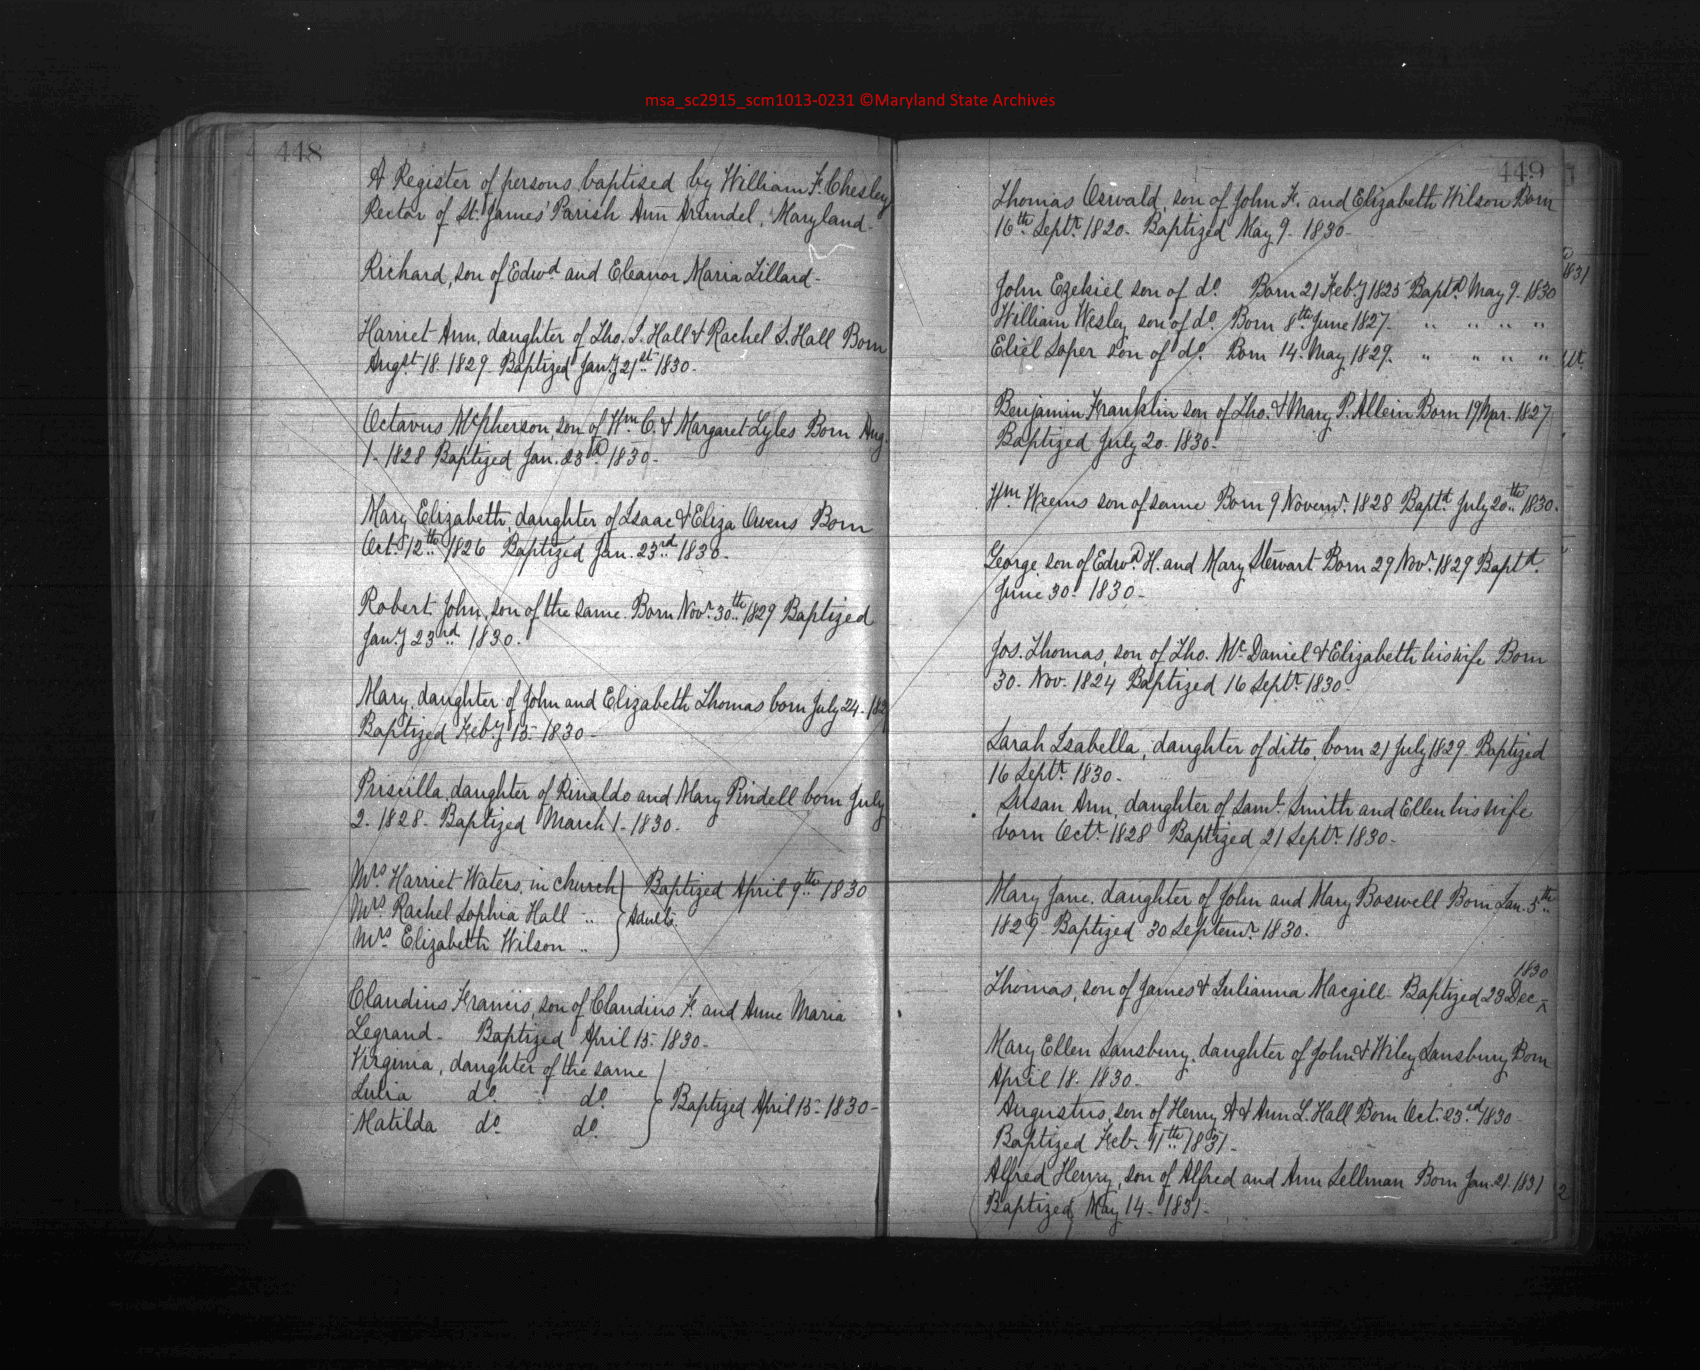 msa_sc2915_scm1013-0231 ©Maryland State Archives
448
A Register of persons baptised by William F. Chesley
Rector of St. James' Parish Ann Arundel, Maryland-
Richard, son of Edwd and Eleanor Maria Lillard-
Harriet Ann, daughter of Tho. I. Hall & Rachel S. Hall Born
Augst 18. 1829. Baptized Jany 21st 1830.
Octavus McPherson, son of Wm C. & Margaret Lyles Born Aug.
1- 1828 Baptized Jan. 23d 1830-
Mary Elizabeth, daughter of Isaac & Eliza Owens Born
Oct. 12th 1826 Baptized Jan. 23rd 1830-
Robert John, son of the same. Born Novr 30th 1829 Baptized
Jany 23rd 1830.
Mary, daughter of John and Elizabeth Thomas born July 24- 182
Baptized Feby 15- 1830-
Priscilla, daughter of Rinaldo and Mary Pindell born July
2- 1828- Baptized March 1- 1830.
Mrs Harriet Waters, in church } Baptized April 9th 1830
Mrs Rachel Sophia Hall " } Adults.
Mrs Elizabeth Wilson "
Claudius Francis, son of Claudius F. and Anne Maria
Legrand- Baptized April 15- 1830-
Virginia, daughter of the same
Julia do. do. } Baptized April 15- 1830-
Matilda do. do.
449
Thomas Oswald, son of John F. and Elizabeth Wilson Born
16th Septr 1820- Baptized May 9- 1830-
John Ezekiel son of do. Born 21 Feby 1825 Baptd May 9- 1830
William Wesley son of do. Born 8th June 1827. " " " "
Eliel Soper son of do. Born 14. May 1829. " " " "
Benjamin Franklin son of Tho. & Mary P. Allein Born 19 Mar. 1827
Baptized July 20- 1830-
Wm Weems son of same Born 9 Novemr 1828 Baptd July 20th 1830.
George, son of Edwd H. and Mary Stewart Born 29 Novr 1829 Baptd.
June 30- 1830-
Jos. Thomas, son of Tho. Mc Daniel & Elizabeth his wife Born
30- Nov. 1824 Baptized 16 Septr 1830-
Sarah Isabella, daughter of ditto, born 21 July 1829- Baptized
16 Septr 1830-
Susan Ann, daughter of Saml Smith and Ellen his wife
born Octr 1828 Baptized 21 Septr 1830-
Mary Jane, daughter of John and Mary Boswell Born Jan. 5th
1829- Baptized 30 Septemr 1830.
1830
Thomas, son of James & Julianna Macgill- Baptized 23 Dec-
Mary Ellen Lansbury, daughter of John & Wiley Lansbury Born
April 18. 1830-
Augustus, son of Henry A & Ann L. Hall Born Oct. 23rd 1830-
Baptized Feb- 11th 1831-
Alfred Henry, son of Alfred and Ann Sellman Born Jan. 21. 1831
Baptized May 14- 1831-